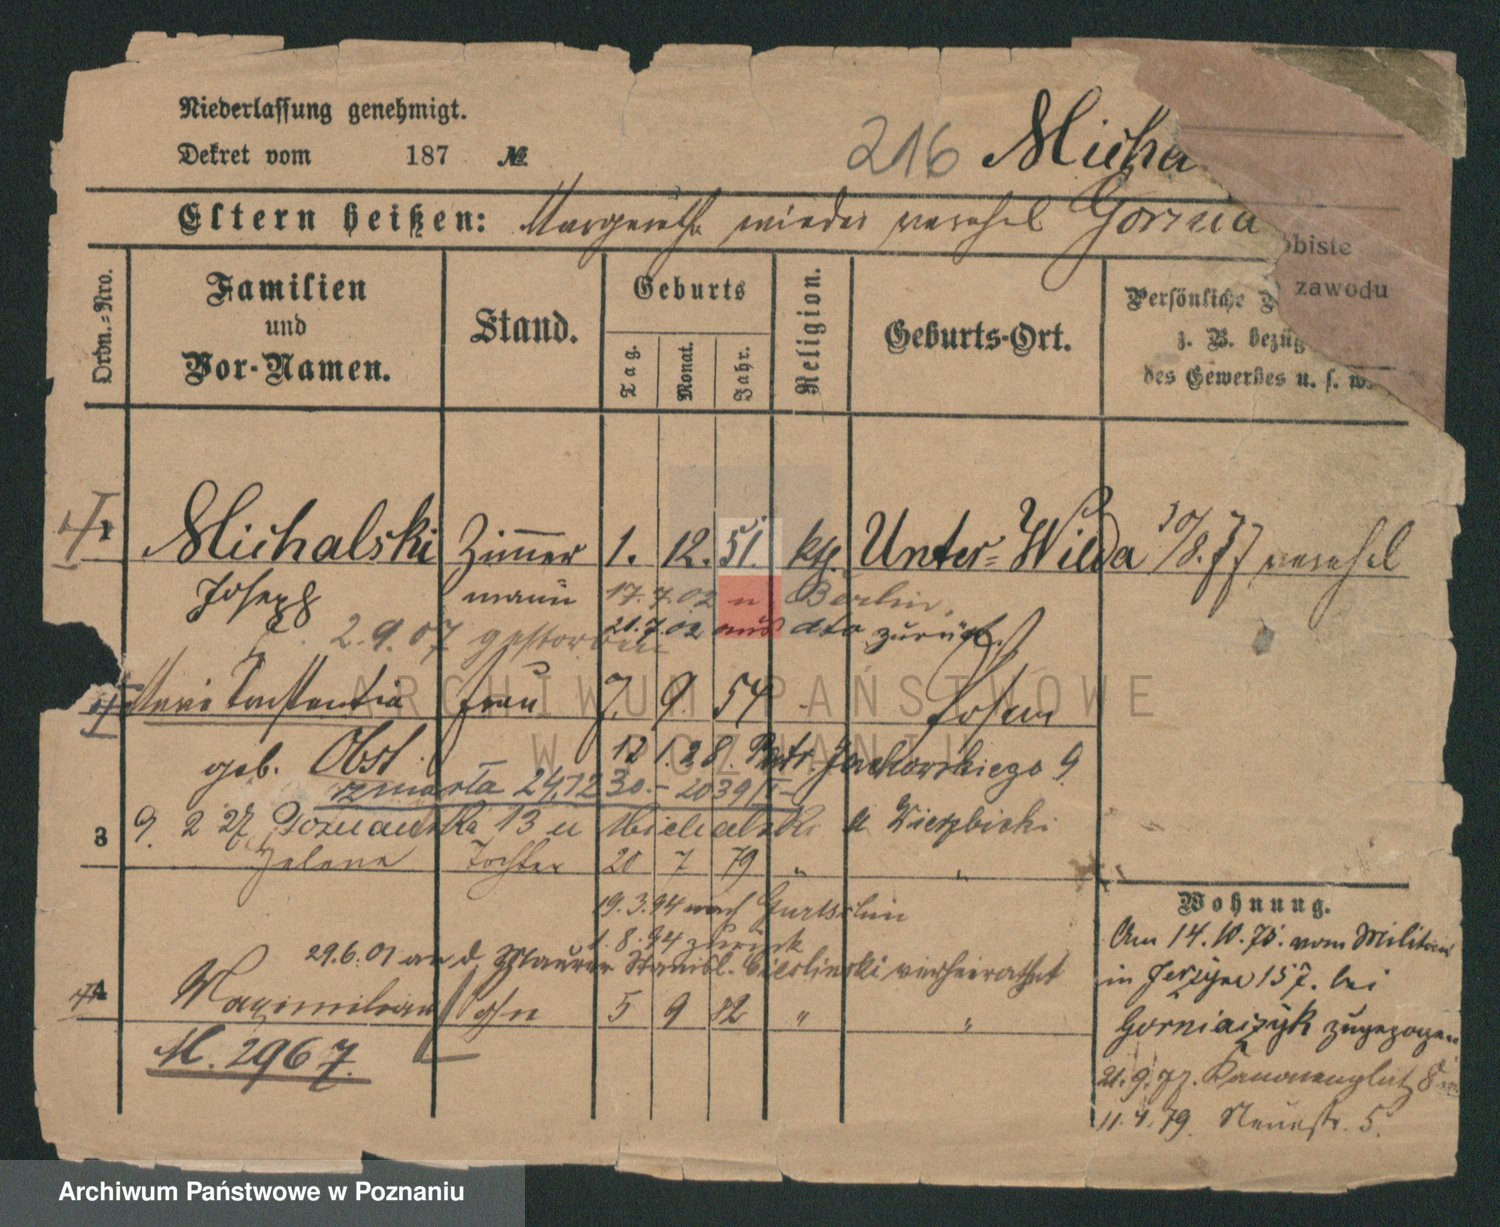 Niederlassung genehmigt.
Dekret vom 187 №
216 Micha
Eltern heißen: Margareth wieder verehel Gornia
obiste
zawodu
Ordn.-Nro.
Familien
und
Vor-Namen.
Stand.
Geburts
Tag.
Monat.
Jahr.
Religion.
Geburts-Ort.
Persönliche
z. B. bezüg
des Gewerbes u. s. w.
1 Michalski Zimmer 1. 12. 51. kth. Unter-Wilda 30/8.77 verehel
Joseph mann 17.7.02 n Berlin.
21.7.02 aus dto zurück
2.9.07 gestorben
Marie Constantia Frau 7. 9. 54 Posen
geb. Obst 12 1.28. Jackowskiego 9
zmarła 24.12 30.- 2039/
3 9. 2 27 Poznańska 13 u Michalski u Wierzbicki
Helene Tochter 20 7 79 " "
19.3.94 nach Gurtschin
1.8.94 zurück
29.6.01 an d. Maurer Stanisl. Cieslinski verheirathet
4 Maximilian Sohn 5 9 82 " "
M. 2967.
Wohnung.
Am 14.10.75. vom Militair
in Jerzyce 157. bei
Gorniaczyk zugezogen
21.9.77. Kanonenplatz 8
11.4.79. Neuestr. 5.
ARCHIWUM PAŃSTWOWE
W POZNANIU
Archiwum Państwowe w Poznaniu